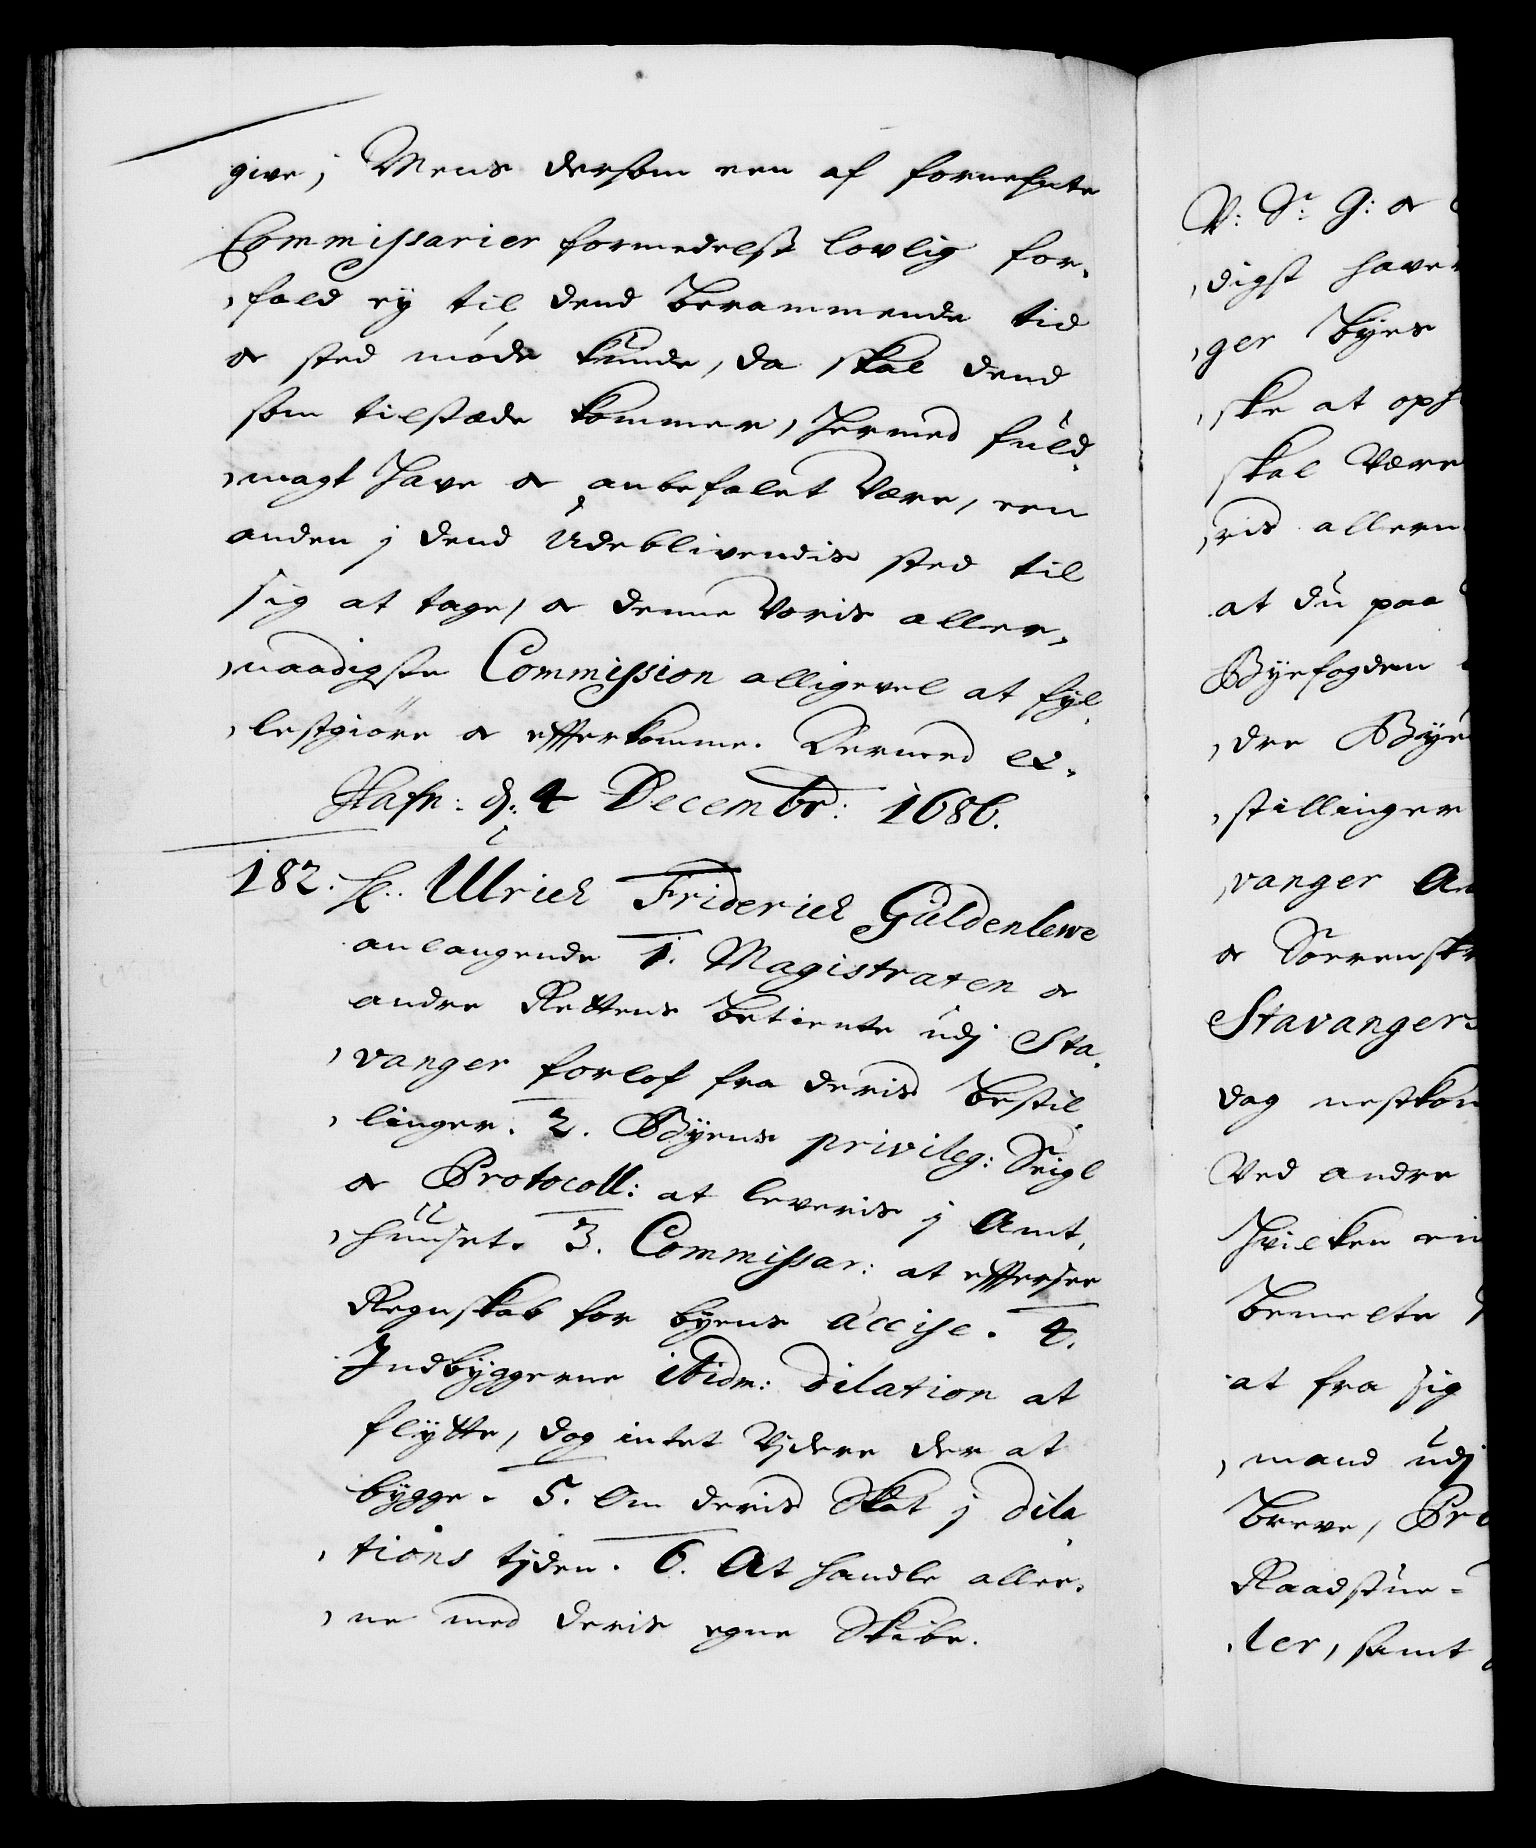 give; Mens dersom een af fornefnte
Commissarier formedelst lovlig for,
,fald ey til dend berammende tid
og sted møde kunde, da skal dend
som tilstæde kommer, hermed fuld,
,magt have og anbefalet være, een
anden j dend Udeblivendis sted til
sig at tage, og denne voris aller,
,naadigste Commission alligevel at fyl,
,lestgiöre og effterkomme. Dermed etc.
Hafn: d: 4 Decembr: 1686.
182. Hr. Ulrich Friderich Güldenlewe
anlangende 1. Magistraten og
andre Rettens betiente udj Sta,
,vanger forlof fra deris bestil,
,linger. 2. Byens privileg: Seigl
og Protocoll: at leveris j Amt,
,huuset. 3. Commissar: at effersee
Regnskab for byens accise. 4.
Indbyggerne ibidm: dilation at
flytte, dog intet vjdere der at
bygge. 5. Om deris Skat j dila,
,tions tjden. 6. At handle alle,
,ne med deris egne Skibe.
V: Sr: G: og
,digst haver
,ger Byes
,ske at oph
skal være
,ris allern
at du paa
Byefogden
,dre Bye
,stillinger
,vanger Am
og Sorenskr
Stavangers
dag nestkom
Ved andre
hvilken
bemelte
at fra sig
,mand udj
breve, Pro
Raadstue-
,ler, samt